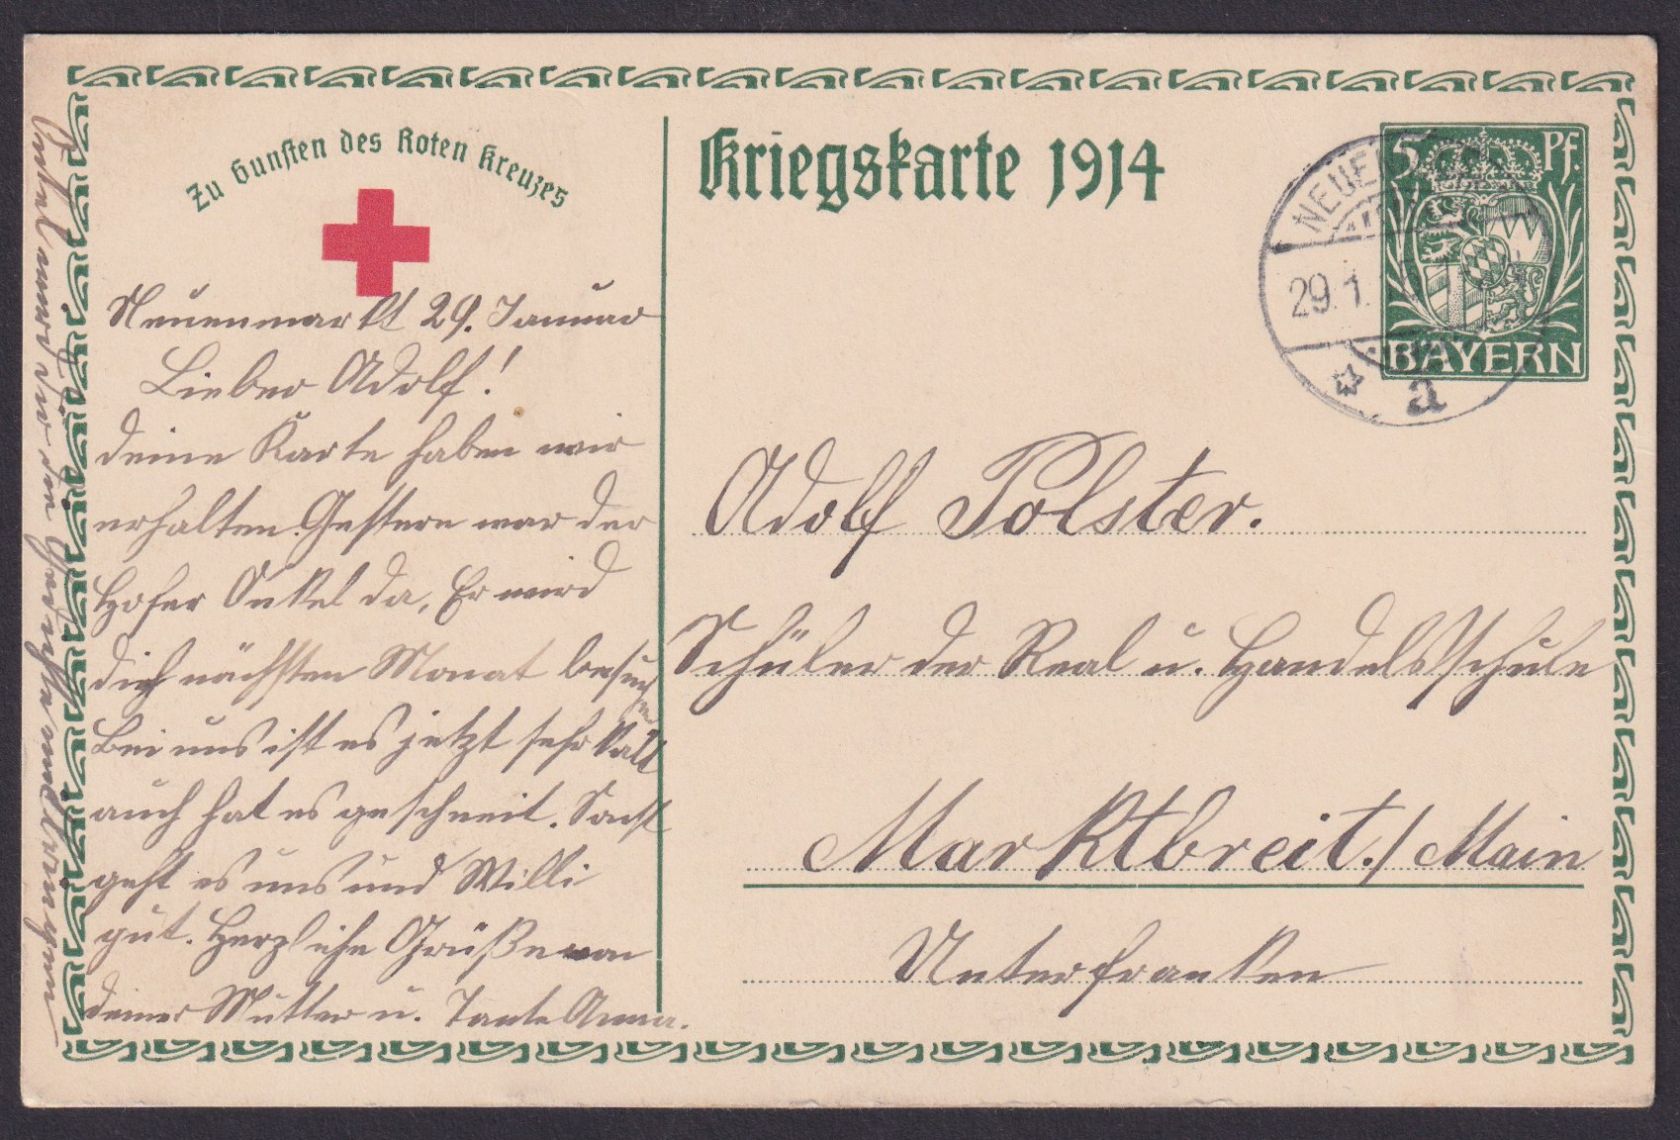 Zu Gunsten des Roten Kreuzes
Kriegskarte 1914
5 Pf.
BAYERN
NEUEN
29.1.
a
Neuenmarkt 29. Januar
Lieber Adolf!
deine Karte haben wir
erhalten. Gestern war der
Hofer Onkel da, Er wird
dich nächsten Monat besuchen
Bei uns ist es jetzt sehr kalt
auch hat es geschneit. Sonst
geht es uns und Willi
gut. Herzliche Grüße von
deiner Mutter u. Tante Anna.
Onkel wird vor den
Adolf Polster.
Schüler der Real u. Handelsschule
Marktbreit./Main
Unterfranken